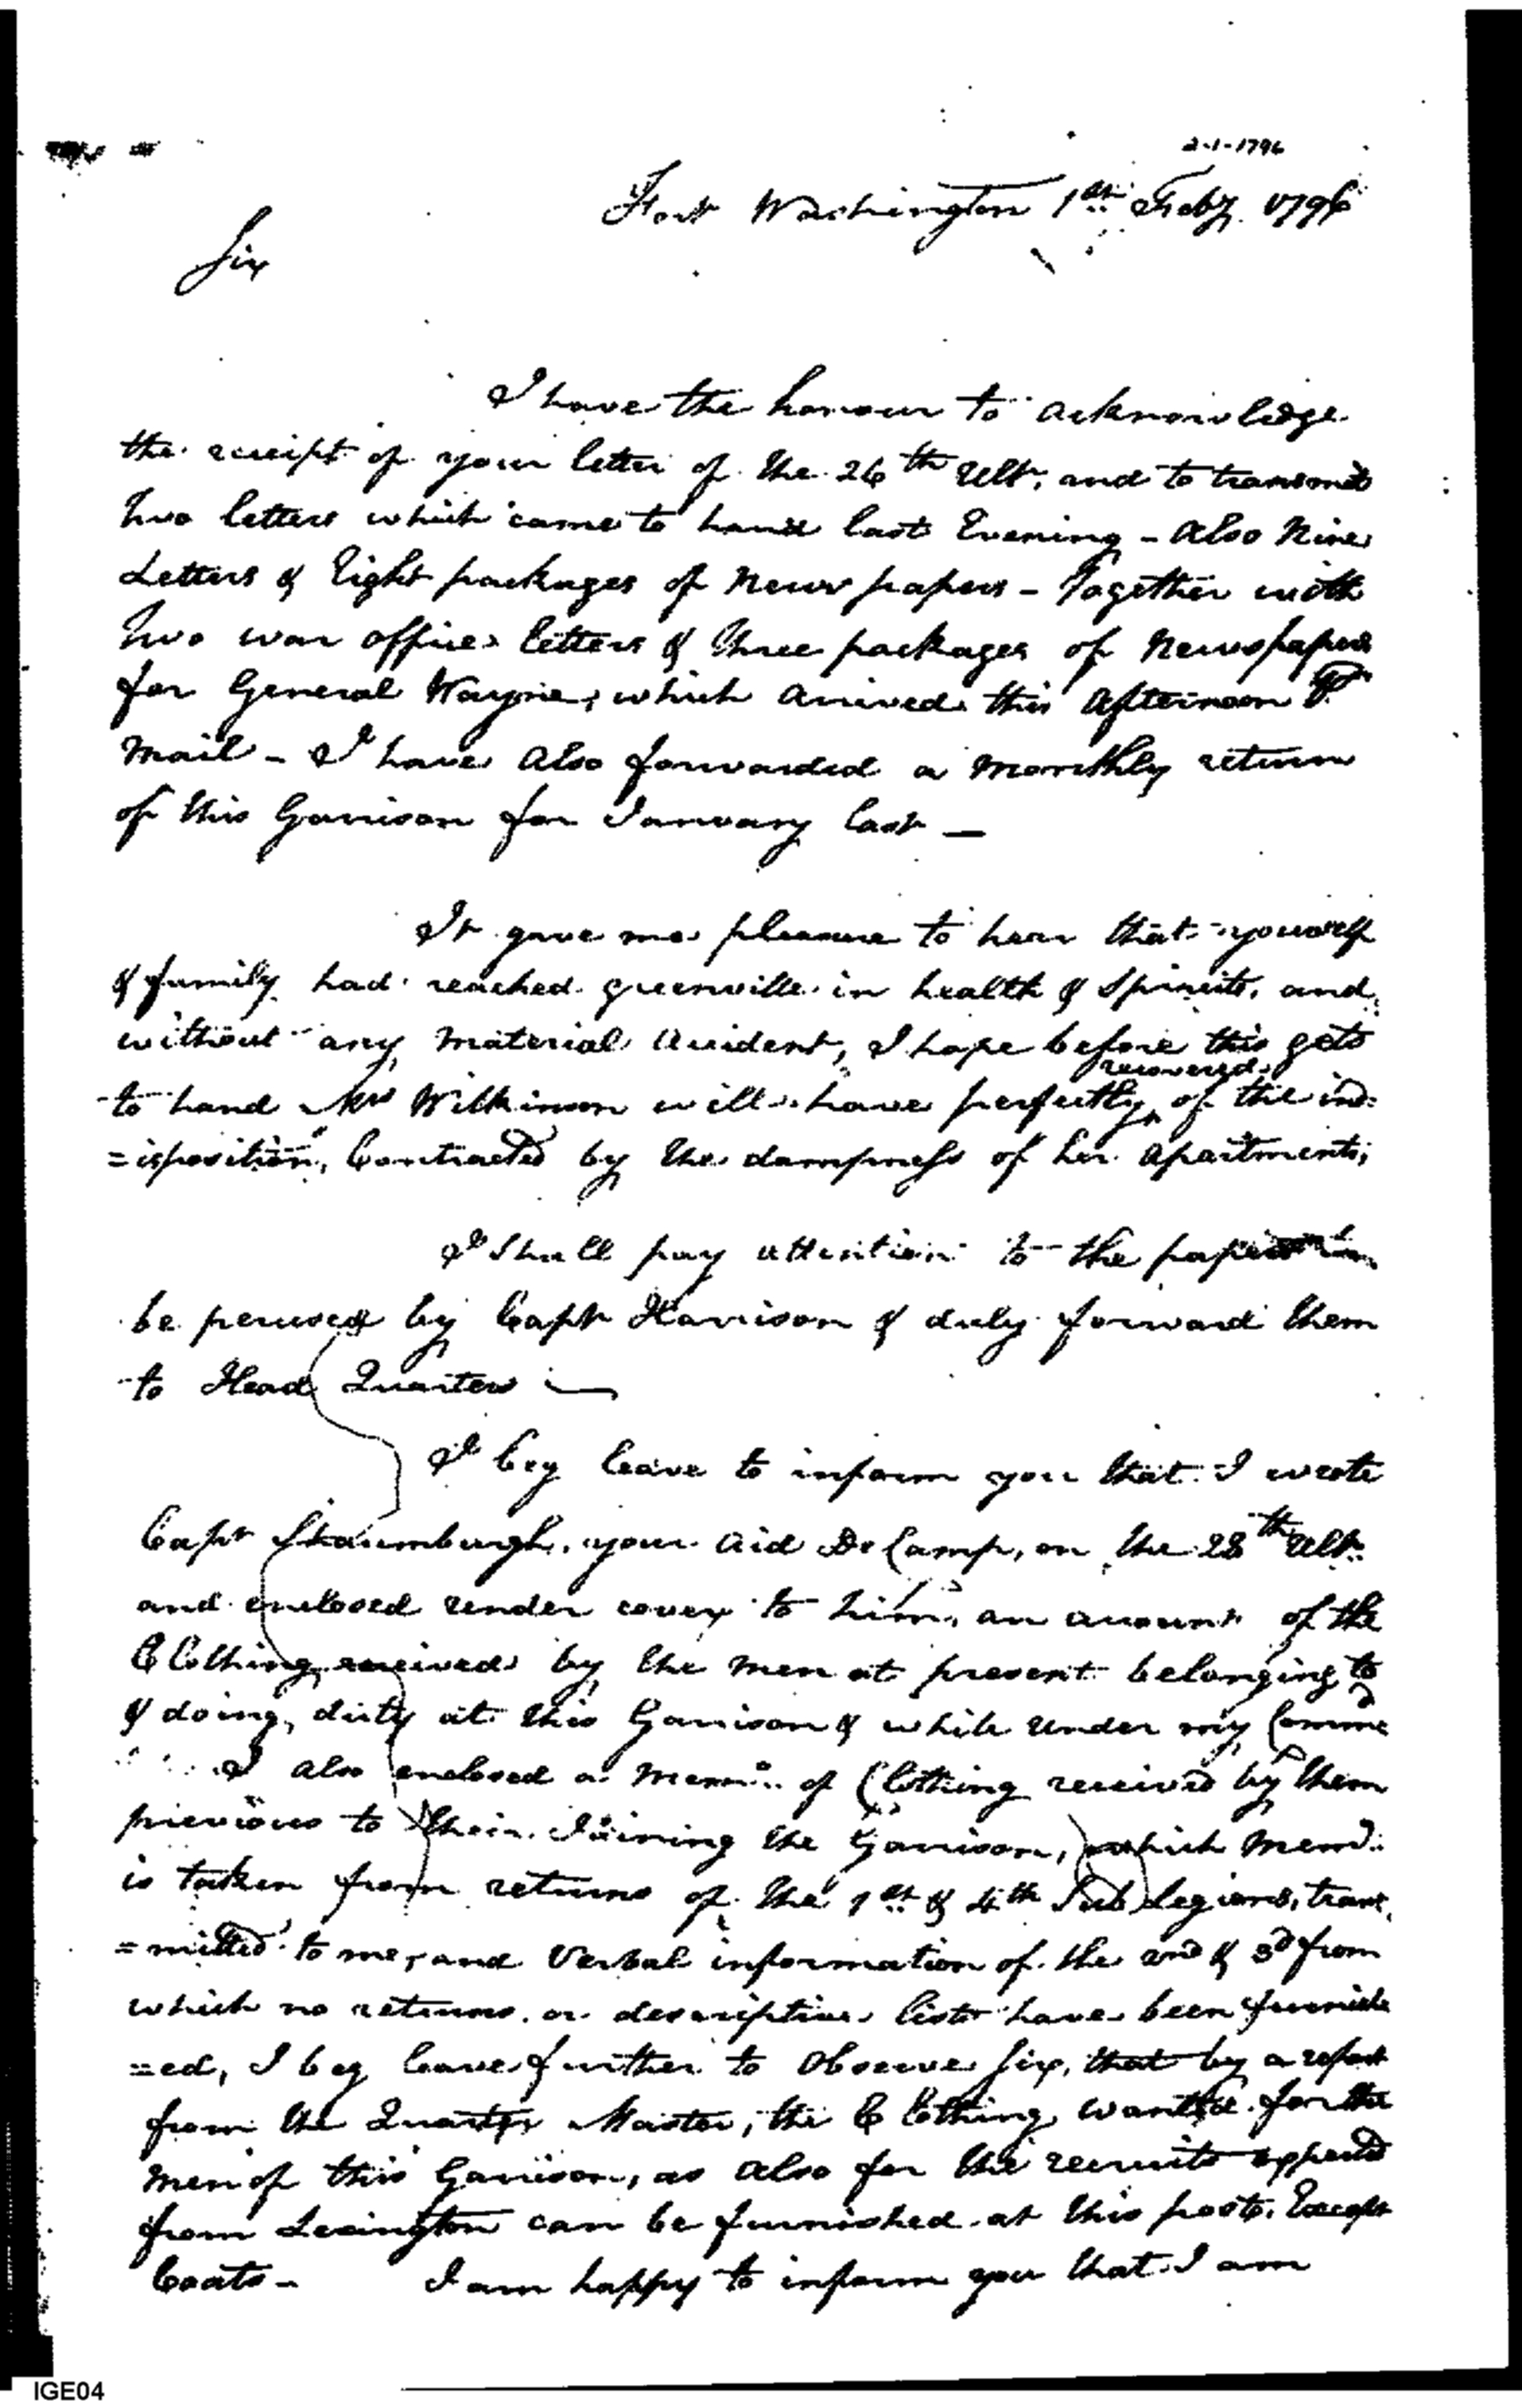 2-1-1796
Fort Washington 1st Feby. 1796
Sir
I have the honour to acknowledge
the receipt of your letter of the 26th Ult. and to transmit
two letters which came to hand last Evening - also Nine
Letters & Eight packages of News papers - Together with
Two war office letters & three packages of Newspapers
for General Wayne, which arived this afternoon ⅌
Mail - I have also forwarded a Monthly return
of this Garrison for January last —
It gave me pleasure to hear that yourself
& family had reached greenville in health & Spirits, and
without any material accident, I hope before this gets
recovered
to hand Mrs Wilkinson will have perfectly ^ of the ind=
=isposition, Contracted by the dampness of her apartments,
I Shall pay attention to the papers
be perused by Capt Harrison & duly forward them
to Head Quarters —
I beg leave to inform you that I wrote
Capt Shaumburgh, your aid De Camp, on the 28th Ult.
and enclosed under cover to him, an account of the
Clothing received by the men at present belonging to
& doing duty at this Garrison & while under my Commd
I also enclosed a Memo. of Clothing received by them
previous to their Joining the Garrison, which Memo.
is taken from returns of the 1st & 4th Sub Legions, trans,
=mitted to me, and Verbal information of the 2nd & 3d from
which no returns or descriptive lists have been furnish
=ed, I beg leave further to observe Sir, that by a report
from the Quarter Master, the Clothing wanted for the
men of this Garrison, as also for the recruits expected
from Lexington can be furnished at this post. Except
Coats - I am happy to inform you that I am
IGE04